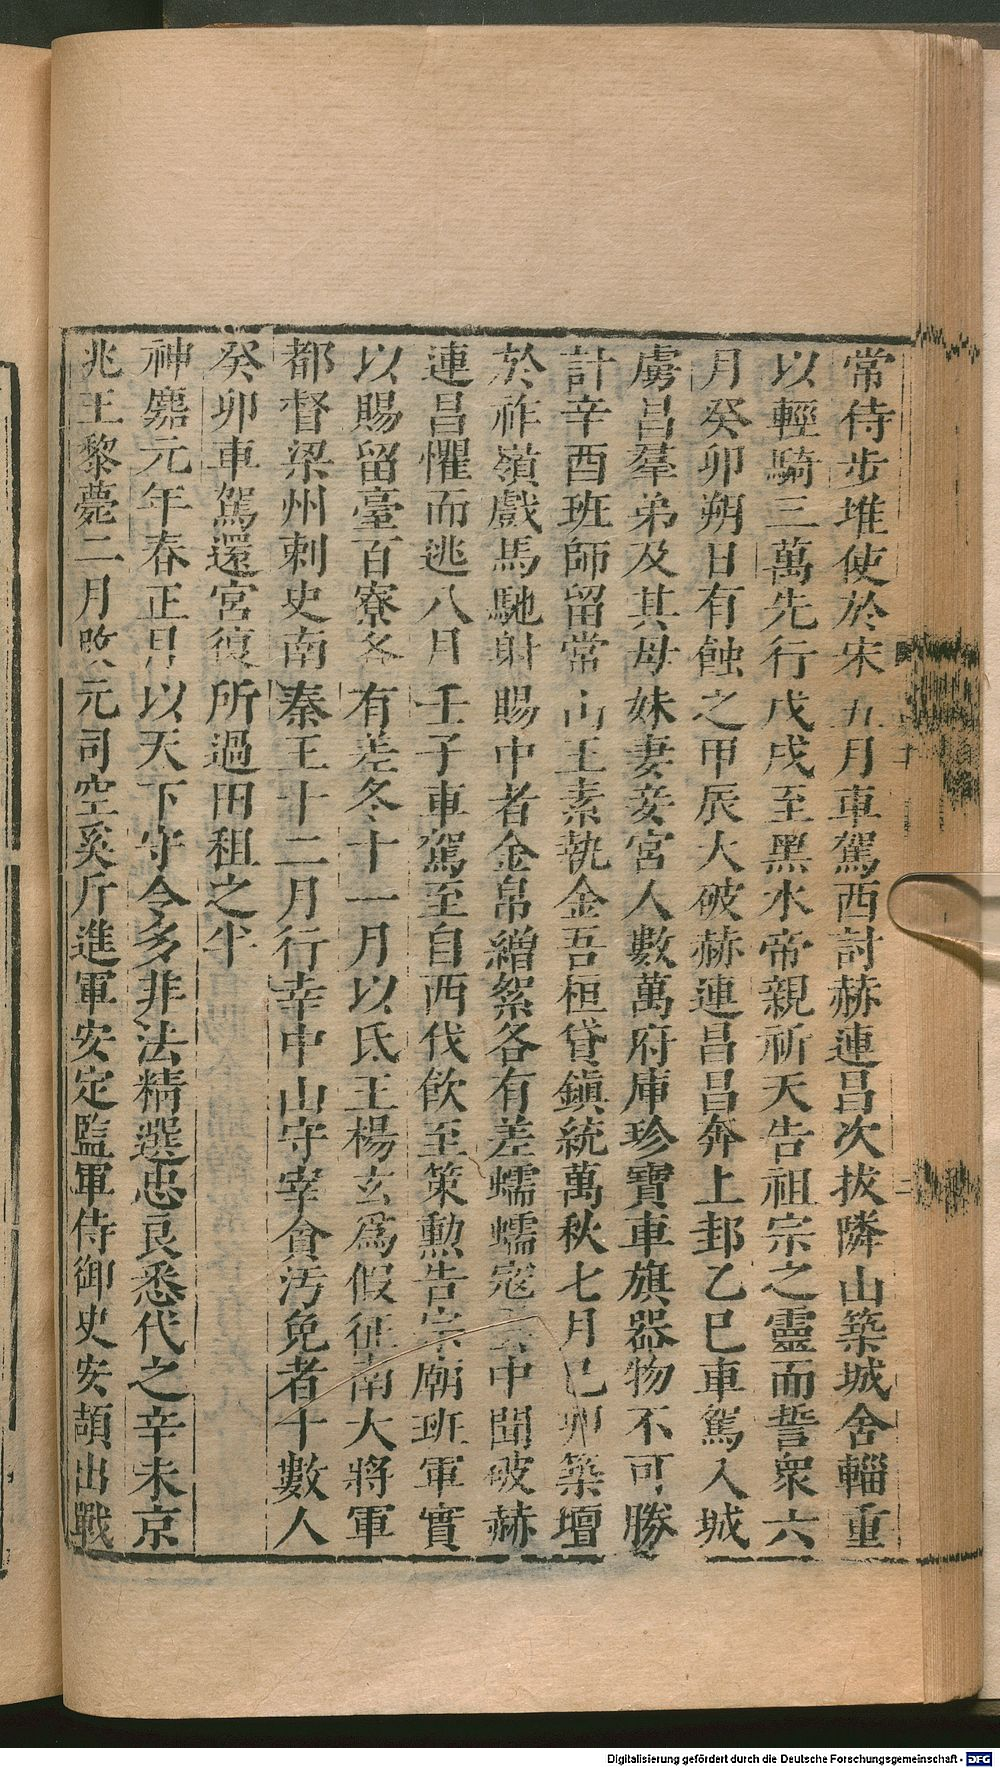 常侍步堆使於宋五月車駕西討赫連昌次拔隣山築城舍輜重
以輕騎三萬先行戊戌至黑水帝親祈天告祖宗之靈而誓衆六
月癸卯朔日有蝕之甲辰大破赫連昌昌奔上邽乙巳車駕入城
虜昌羣弟及其母妹妻妾宮人數萬府庫珍寶車旗器物不可勝
計辛酉班師留常山王素執金吾桓貸鎭統萬秋七月己卯築壇
於祚嶺戲馬馳射賜中者金帛繒絮各有差蠕蠕寇雲中聞破赫
連昌懼而逃八月壬子車駕至自西伐飲至策勳告宗廟班軍實
以賜留臺百寮各有差冬十一月以氐王楊玄爲假征南大將軍
都督梁州刺史南秦王十二月行幸中山守宰貪汚免者十數人
癸卯車駕還宮復所過田租之半
神䴥元年春正月以天下守令多非法精選忠良悉代之辛未京
兆王黎薨二月改元司空奚斤進軍安定監軍侍御史安頡出戰
Digitalisierung gefördert durch die Deutsche Forschungsgemeinschaft - DFG